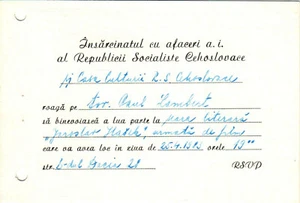 Însărcinatul cu afaceri a.i.
al Republicii Socialiste Cehoslovace
și Casa Culturii R.S. Cehoslovace
roagă pe Dor. Paul Lambert
să binevoiască a lua parte la seara literară
„Jaroslav Hašek”, urmată de film
care va avea loc în ziua de 25.4. orele 19⁰⁰
str.
RSVP